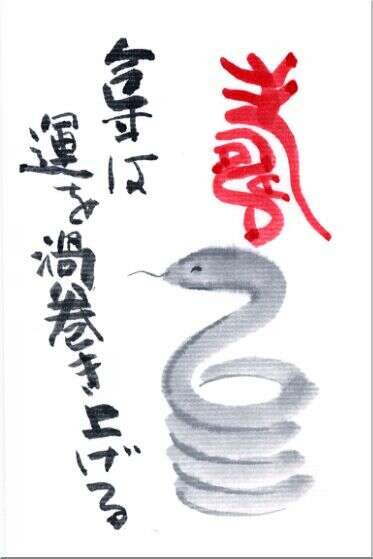 今年は
運を渦巻き上げる